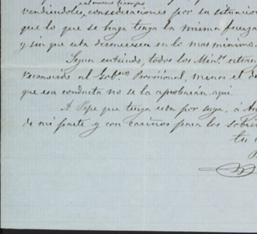 al mismo tiempo
vendiendoles, consideraciones por su situacion
que lo que se haga tenga la misma fuerza
y sin que esta desmerezca en lo mas minimo
Segun entiendo, todos los Min.s estan
reconocido al Gob.no Provisional, menos el de
que esa conducta no se la aprobarán aquí.
A Pepe que tenga esta por suya, á
de mi parte y con cariños para los sobri
tu